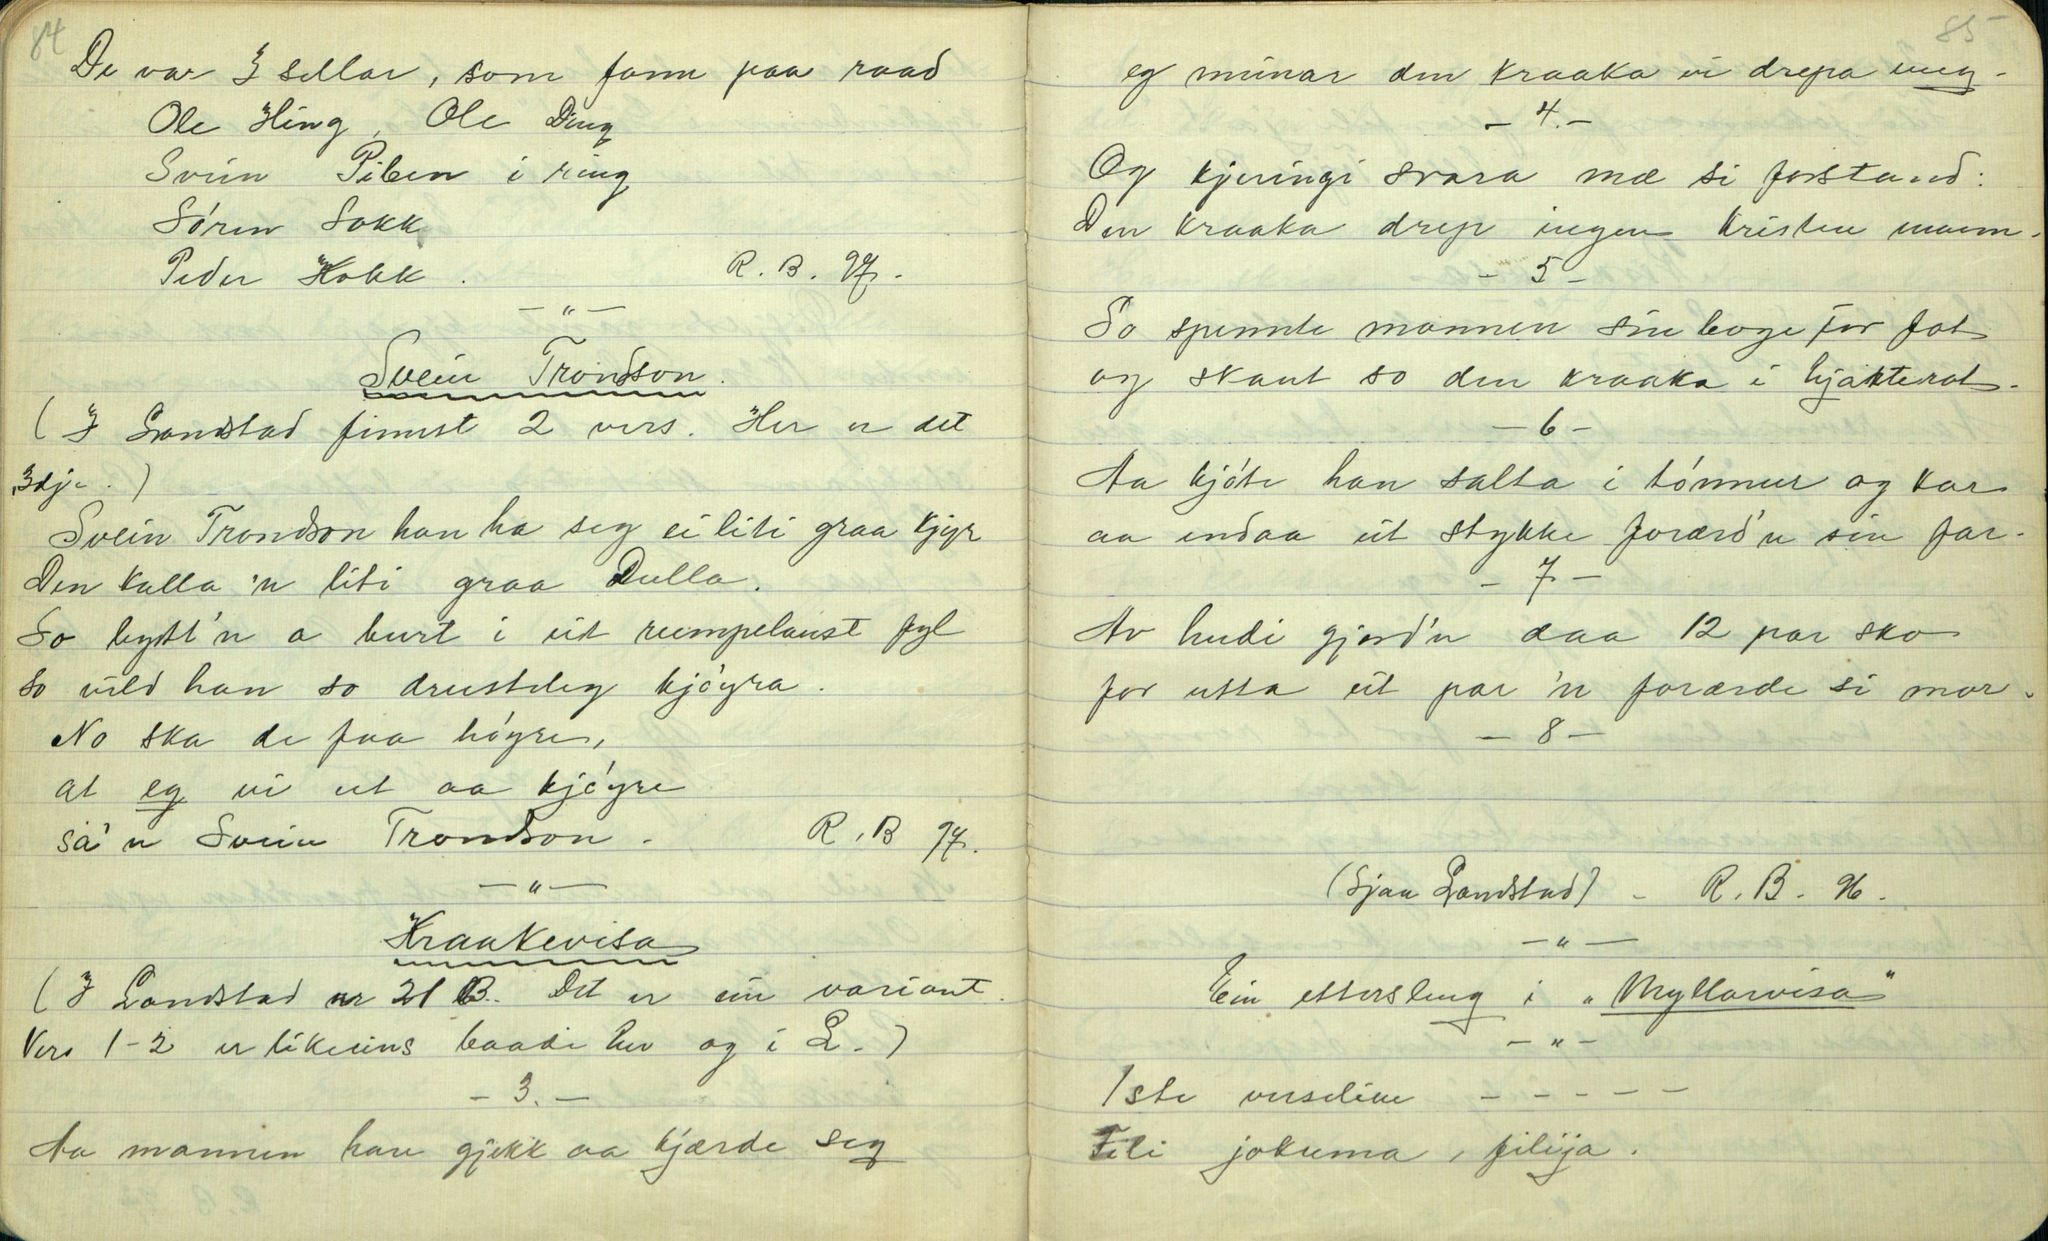 84
De var 3 sellar, som fann paa raad
Ole Hing, Ole Ding
Svein Piben i ring
Sóren Sokk
Peder Kokk. R. B. 97.
— " —
Svein Trondson.
(I Landstad finnst 2 vers. Her er det
3dje.)
Svein Trondson han ha seg ei liti graa kjyr
Den kalla 'n liti graa Dulla.
So bytt'n a burt i eit rumpelaust fyl
so vild han so drusteleg kjóyra.
No ska de faa hóyre,
at eg vi ut aa kjóyre
sa'n Svein Trondson. R. B 97.
— " —
Kraakevisa
(I Landstad nr 21 B. Det er ein variant.
Vers 1-2 er likeeins baade her og i L.)
- 3. -
Aa mannen han gjekk aa kjærde seg
85
eg meinar den kraaka vi drepa meg.
- 4. -
Og kjeringi svara mæ si forstand:
Den kraaka drep ingen kristen mann.
- 5 -
So spennte mannen sin boge for fot
og skaut so den kraaka i hjarterot.
- 6 -
Aa kjóte han salta i tónnur og kar
aa endaa eit stykke forærd'n sin far.
- 7 -
Av hudi gjord'n daa 12 par sko
for utta eit par 'n forærde si mor.
- 8 -
(Sjaa Landstad) - R. B. 96.
— " —
Ein ettersleng i "Myllarvisa"
— " —
1ste verseline - - - - -
Fili jokuma, filija.